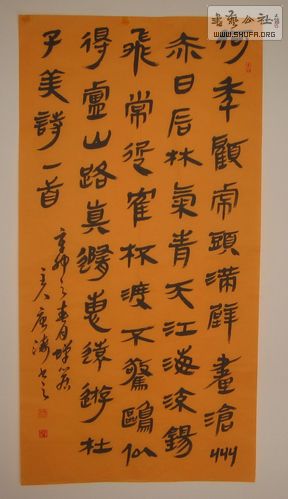 书法公社
WWW.SHUFA.ORG
何年顧虎頭滿壁畫滄州
赤日石林氣青天江海流錫
飛常近鶴杯渡不驚鷗似
得盧山路真隨惠遠遊杜
子美詩一首
辛卯之春月
主人唐濤書之